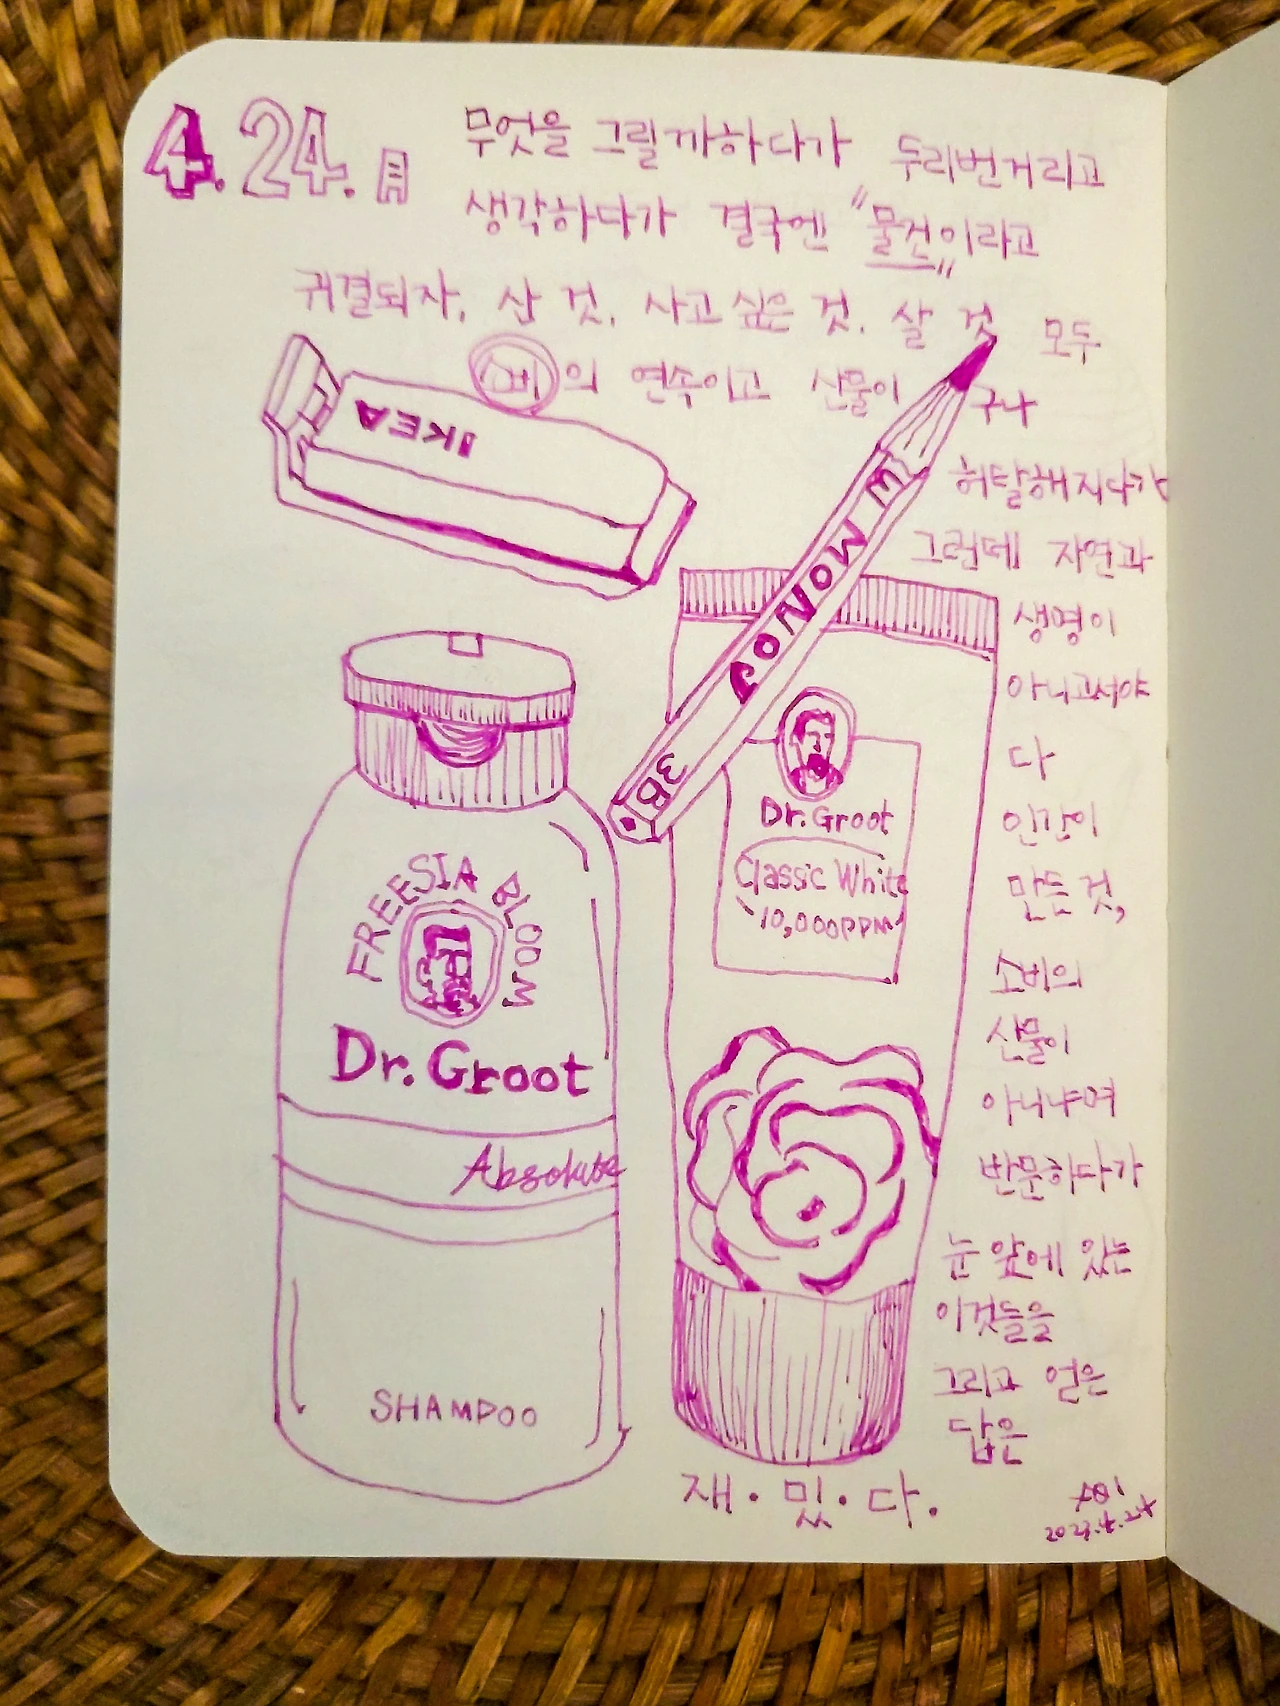 4.24.月
무엇을 그릴까하다가 두리번거리고
생각하다가 결국엔 "물건"이라고
귀결되자, 산 것, 사고싶은 것, 살 것 모두
비의 연속이고 산물이구나
허탈해지다가
그런데 자연과
생명이
아니고서야
다
인간이
만든 것,
소비의
산물이
아니냐며
반문하다가
눈 앞에 있는
이것들을
그리고 얻은
답은
재·밌·다.
2023.4.24
IKEA
MONO J
3B
FREESIA BLOOM
Dr. Groot
Absolute
SHAMPOO
Dr. Groot
Classic White
10,000PPM